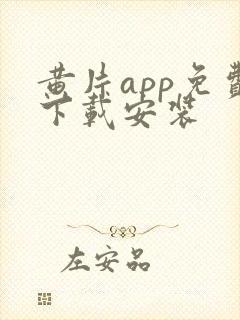 黄片app免费
下载安装
左安品